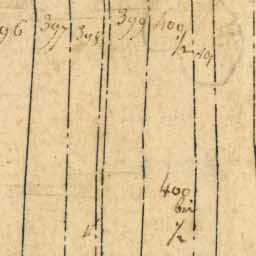 96 397 398 399 400
1/2
400
bis
1/2